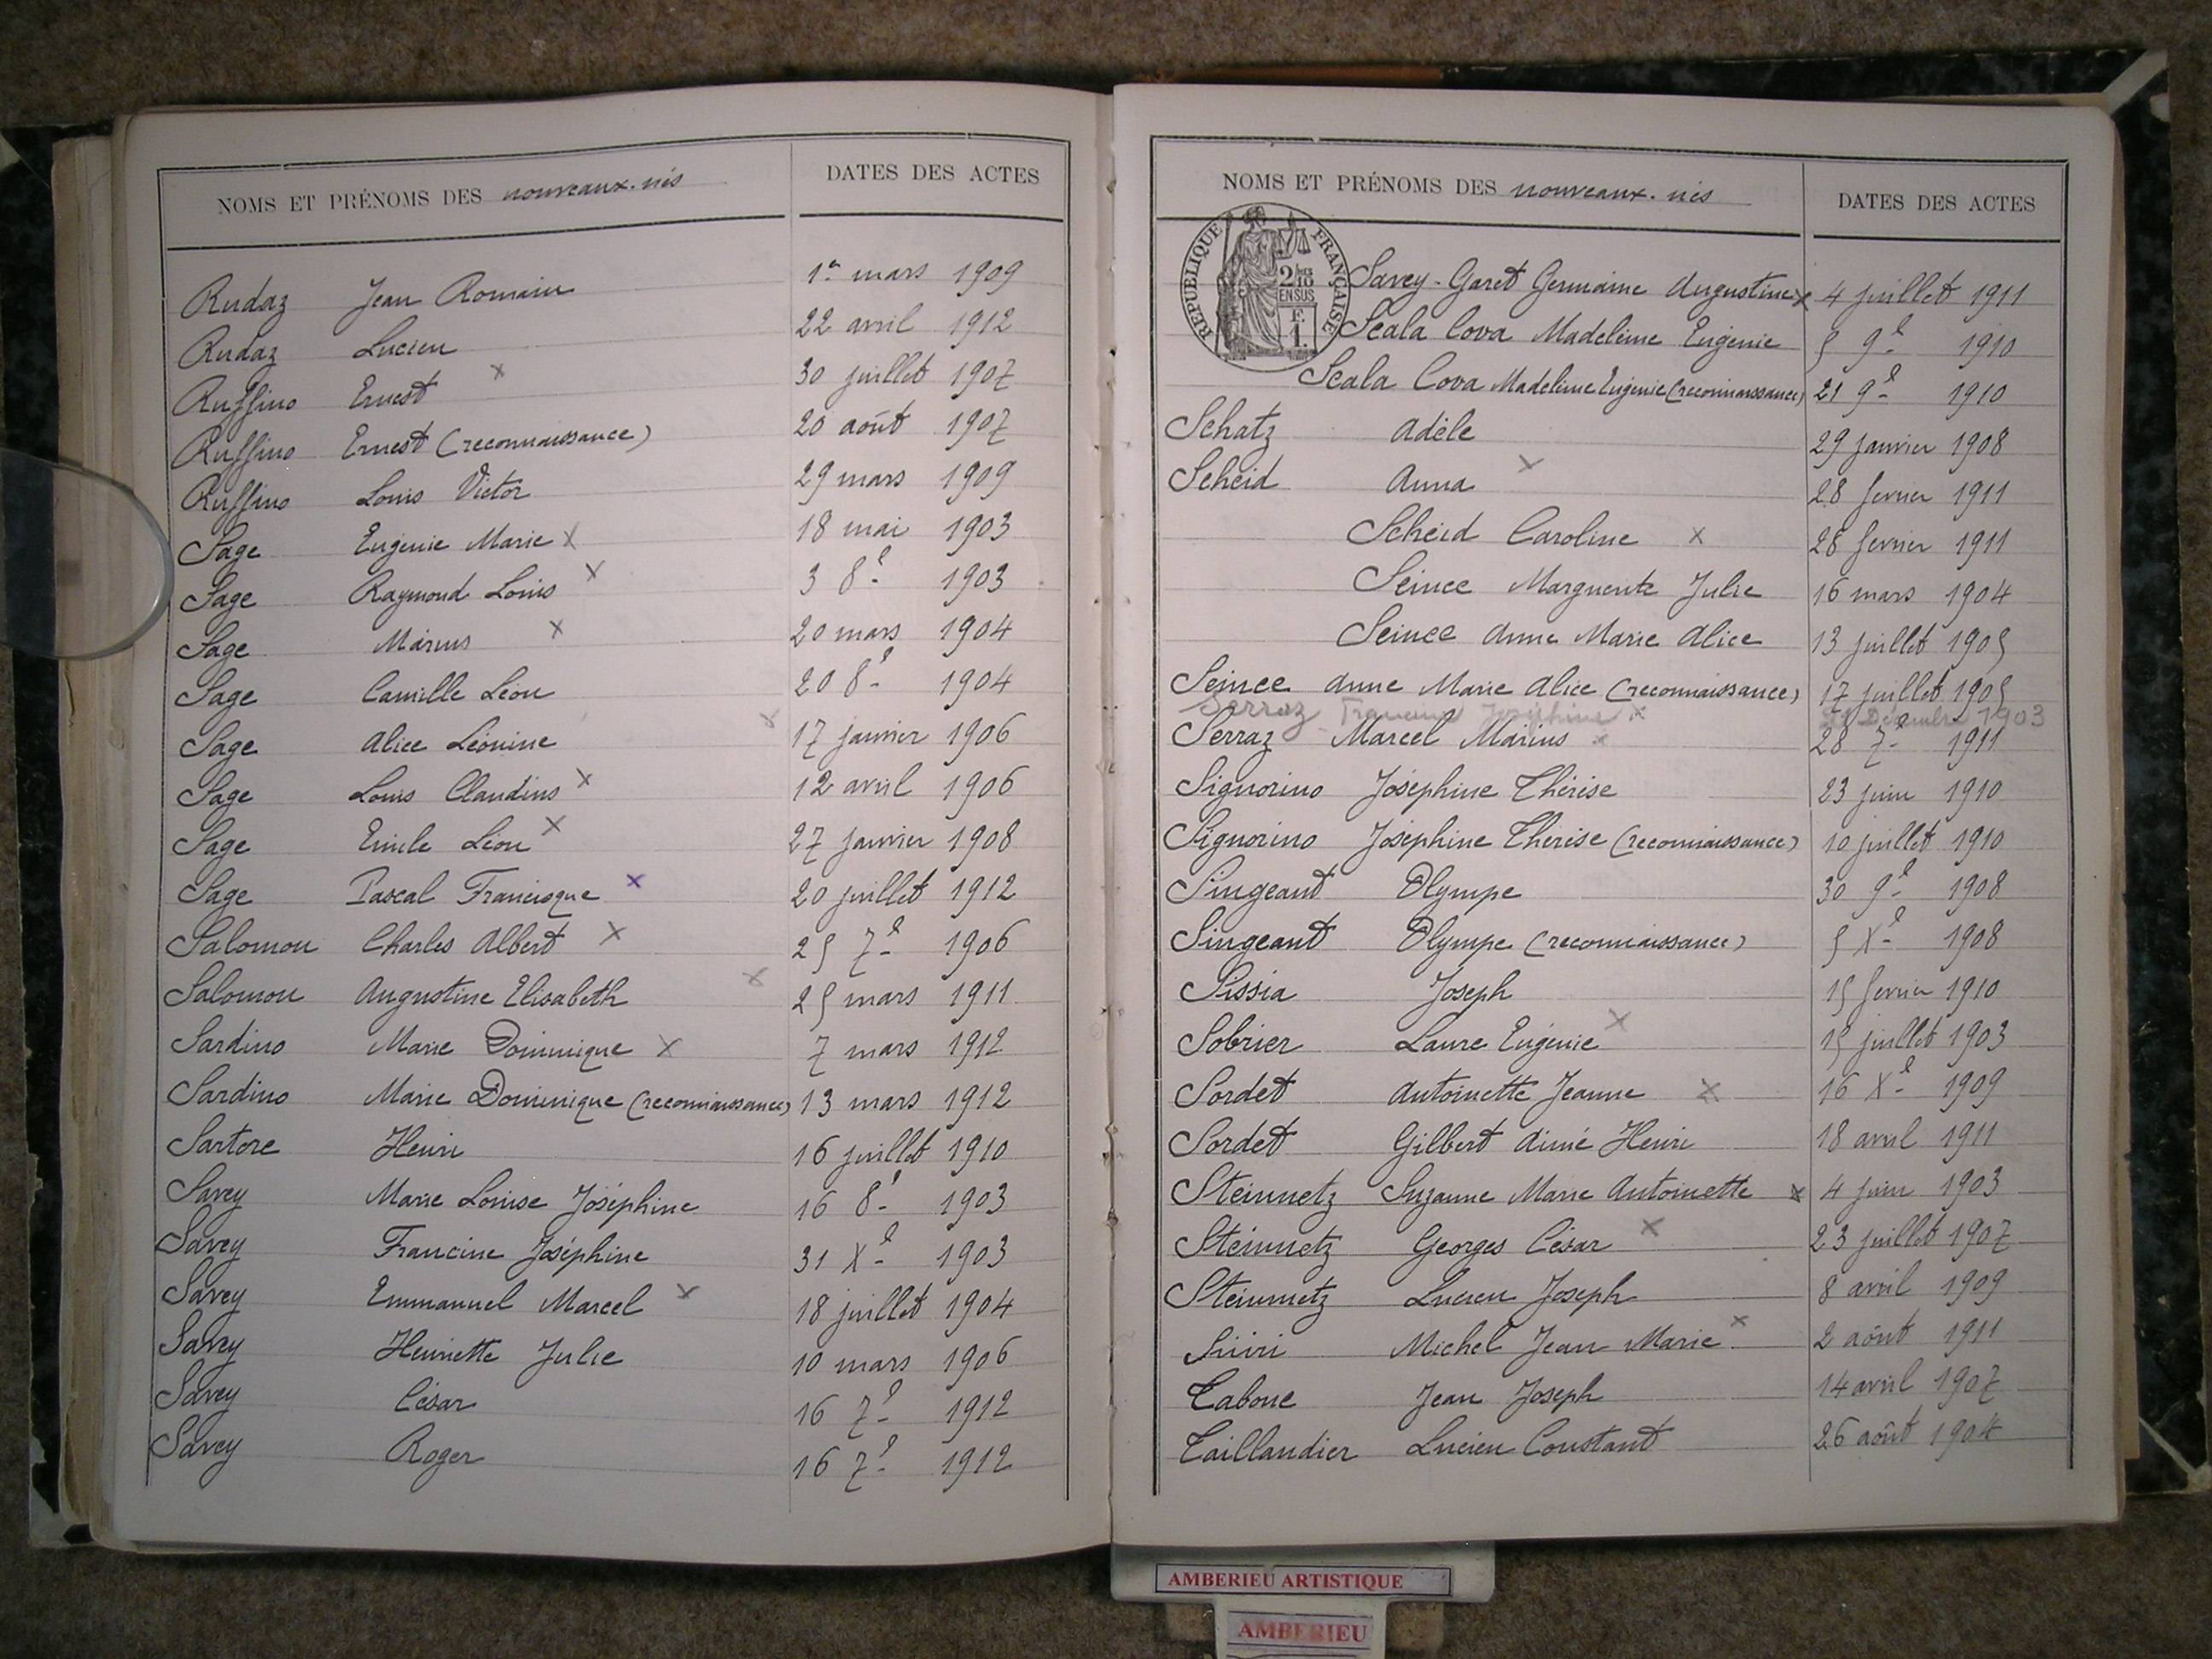 NOMS ET PRÉNOMS DES nouveaux-nés DATES DES ACTES
Rudaz Jean Romain 1er mars 1909
Rudaz Lucien 22 avril 1912
Ruffino Ernest x 30 juillet 1907
Ruffino Ernest (reconnaissance) 20 août 1907
Ruffino Louis Victor 29 mars 1909
Sage Eugénie Marie x 18 mai 1903
Sage Raymond Louis x 3 8e 1903
Sage Marius x 20 mars 1904
Sage Camille Léon 20 8e 1904
Sage Alice Léonine x 17 janvier 1906
Sage Louis Claudius x 12 avril 1906
Sage Emile Léon x 27 janvier 1908
Sage Pascal Francisque x 20 juillet 1912
Salomon Charles Albert x 25 7e 1906
Salomon Augustine Elisabeth x 25 mars 1911
Sardino Marie Dominique x 7 mars 1912
Sardino Marie Dominique (reconnaissance) 13 mars 1912
Sartore Henri 16 juillet 1910
Savey Marie Louise Joséphine 16 8e 1903
Savey Francine Joséphine 31 Xe 1903
Savey Emmanuel Marcel x 18 juillet 1904
Savey Henriette Julie 10 mars 1906
Savey César 16 7e 1912
Savey Roger 16 7e 1912
NOMS ET PRÉNOMS DES nouveaux-nés DATES DES ACTES
REPUBLIQUE FRANÇAISE
2/10
EN SUS
F.
1.
Savey-Garet Germaine Augustine x 4 juillet 1911
Scala Cova Madeleine Eugénie 5 9e 1910
Scala Cova Madeleine Eugénie (reconnaissance) 21 9e 1910
Schatz Adèle 29 janvier 1908
Scheid Anna x 28 fevrier 1911
Scheid Caroline x 28 fevrier 1911
Seince Marguerite Julie 16 mars 1904
Seince Anne Marie Alice 13 juillet 1905
Seince Anne Marie Alice (reconnaissance) 17 juillet 1905
Serraz Francine Joséphine x 31 Décembre 1903
Serraz Marcel Marius x 28 7e 1911
Signorino Joséphine Thérèse 23 juin 1910
Signorino Joséphine Thérèse (reconnaissance) 10 juillet 1910
Singeant Olympe 30 9e 1908
Singeant Olympe (reconnaissance) 5 Xe 1908
Sissia Joseph 15 fevrier 1910
Sobrier Laure Eugénie x 15 juillet 1903
Sordet Antoinette Jeanne x 16 Xe 1909
Sordet Gilbert Aimé Henri 18 avril 1911
Steinmetz Suzanne Marie Antoinette x 4 juin 1903
Steinmetz Georges César x 23 juillet 1907
Steinmetz Lucien Joseph 8 avril 1909
Michel Jean Marie x 2 août 1911
Taboue Jean Joseph 14 avril 1907
Taillandier Lucien Constant 26 août 1904
AMBERIEU ARTISTIQUE
AMBERIEU